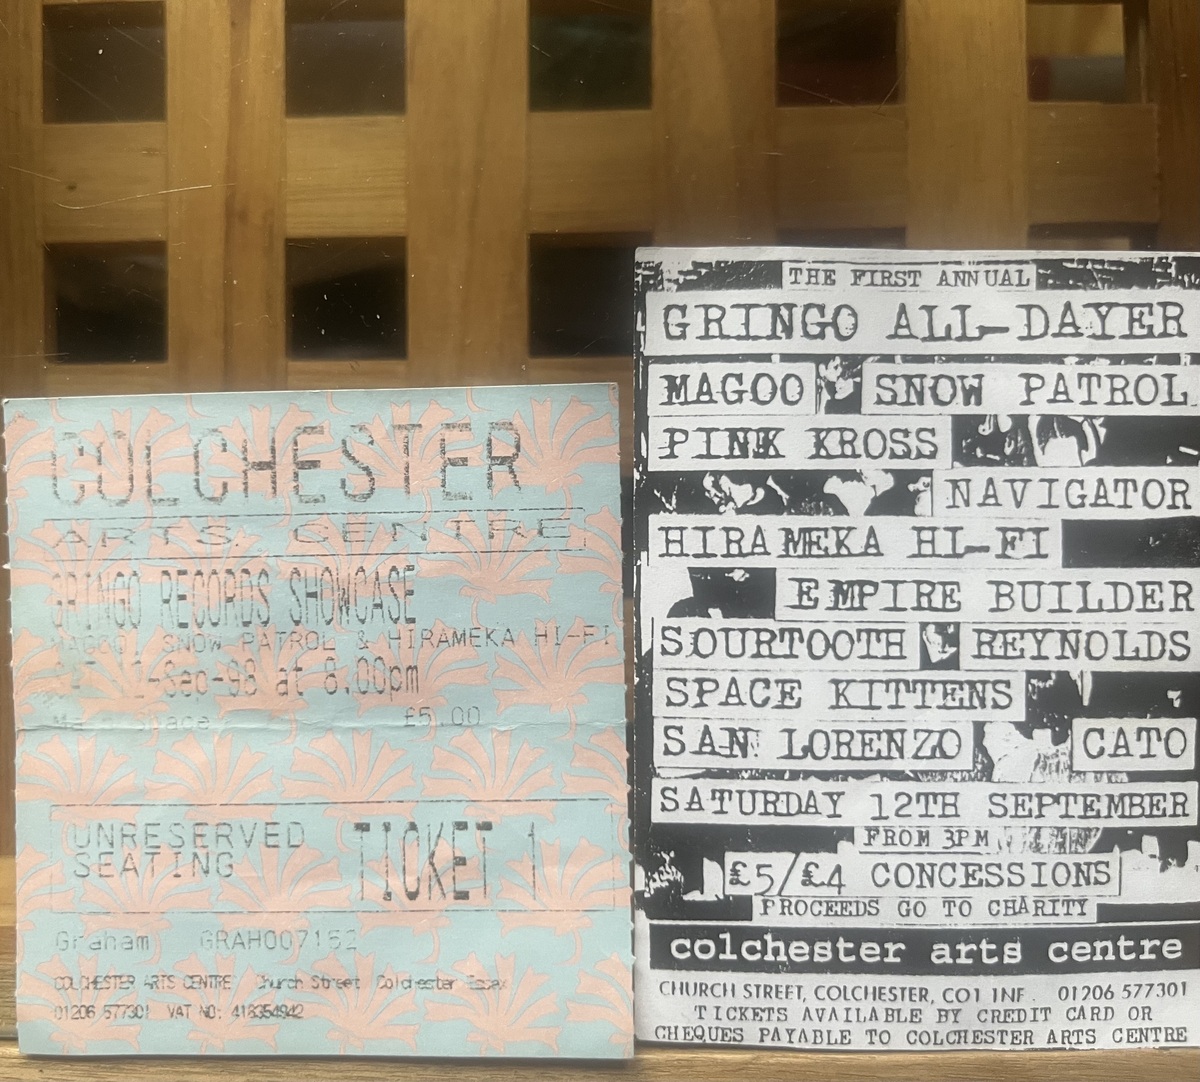 COLCHESTER
ARTS CENTRE
GRINGO RECORDS SHOWCASE
MAGOO, SNOW PATROL & HIRAMEKA HI-FI
-Sep-98 at 8.00pm
Main Space £5.00
UNRESERVED
SEATING
TICKET 1
Graham GRAH007152
COLCHESTER ARTS CENTRE Church Street Colchester Essex
01206 577301 VAT NO: 418354942
THE FIRST ANNUAL
GRINGO ALL-DAYER
MAGOO SNOW PATROL
PINK KROSS
NAVIGATOR
HIRAMEKA HI-FI
EMPIRE BUILDER
SOURTOOTH REYNOLDS
SPACE KITTENS
SAN LORENZO CATO
SATURDAY 12TH SEPTEMBER
FROM 3PM
£5/£4 CONCESSIONS
PROCEEDS GO TO CHARITY
colchester arts centre
CHURCH STREET, COLCHESTER, CO1 1NF. 01206 577301
TICKETS AVAILABLE BY CREDIT CARD OR
CHEQUES PAYABLE TO COLCHESTER ARTS CENTRE